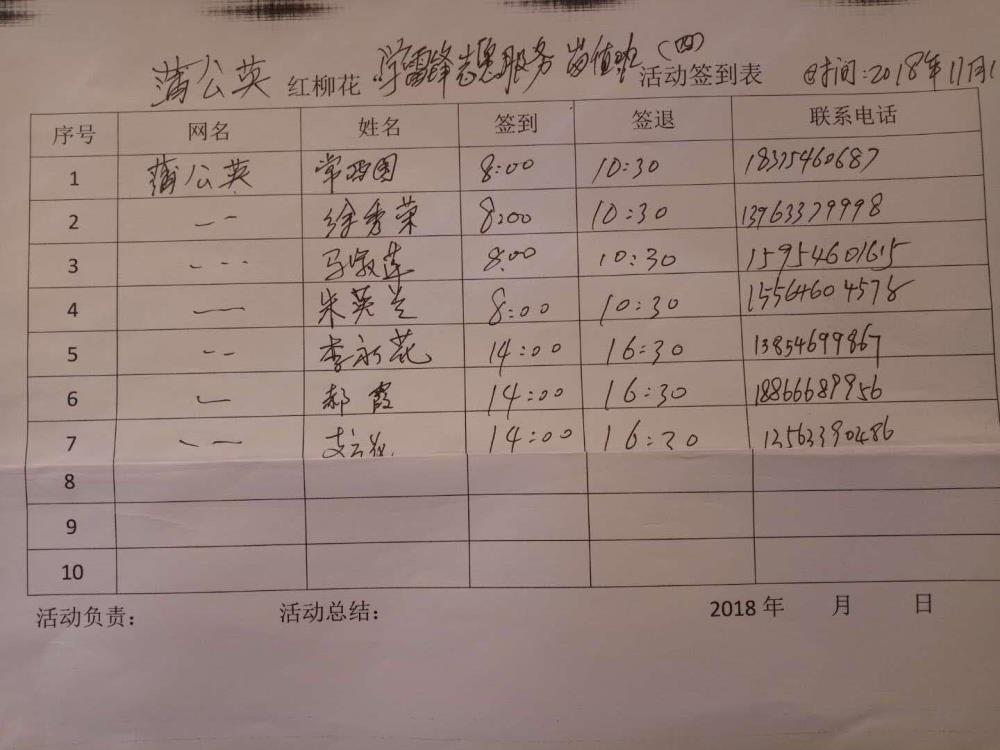 蒲公英 红柳花 学雷锋志愿服务 岗值班（四） 活动签到表 时间:2018年11月
序号 网名 姓名 签到 签退 联系电话
1 蒲公英 常西国 8:00 10:30 18375460687
2 〃 徐秀荣 8:00 10:30 13963379998
3 〃 马敏莲 8:00 10:30 15954601615
4 〃 朱英兰 8:00 10:30 15564604578
5 〃 李永花 14:00 16:30 13854699867
6 〃 郝霞 14:00 16:30 18866689956
7 〃 14:00 16:30 13563390486
8
9
10
活动负责： 活动总结： 2018 年 月 日